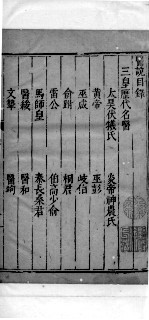 醫說目錄
三皇歷代名醫
太昊伏犧氏
炎帝神農氏
黃帝
巫彭
巫咸
岐伯
俞跗
桐君
雷公
伯高少俞
馬師皇
秦長桑君
醫緩
醫和
文摯
醫竘